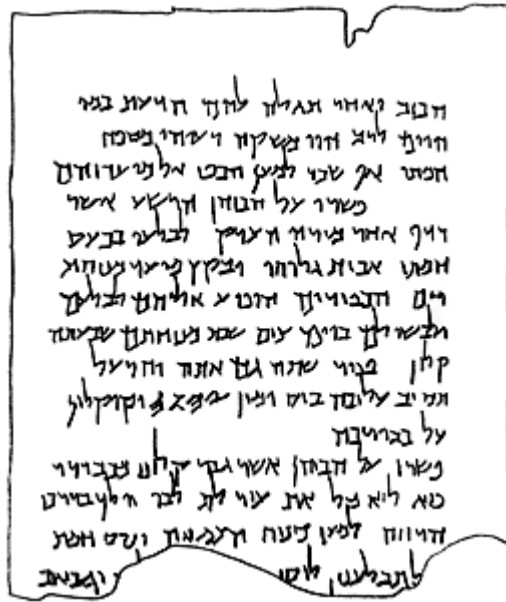 הכזב ואחר תגלה להם הדעת כמי
היים לרב הוי משקה רעיהו מספח
חמתו אף שכר למען הבט אל מועדיהם
פשרו על הכוהן הרשע אשר
רדף אחר מורה הצדק לבלעו בכעס
חמתו אבית גלותו ובקץ מועד מנוחת
יום הכפורים הופיע אליהם לבלעם
ולכשילם ביום צום שבת מנוחתם שבעתה
קלון מכבוד שתה גם אתה והרעל
תסוב עליכה כוס ימין 𐤉𐤄𐤅𐤄 וקיקלון
על כבודכה
פשרו על הכוהן אשר גבר קלונו מכבודו
כיא לוא מל את עורלת לבו וילך בדרכי
הרויה למען ספות הצמאה וכוס חמת
תבלענו